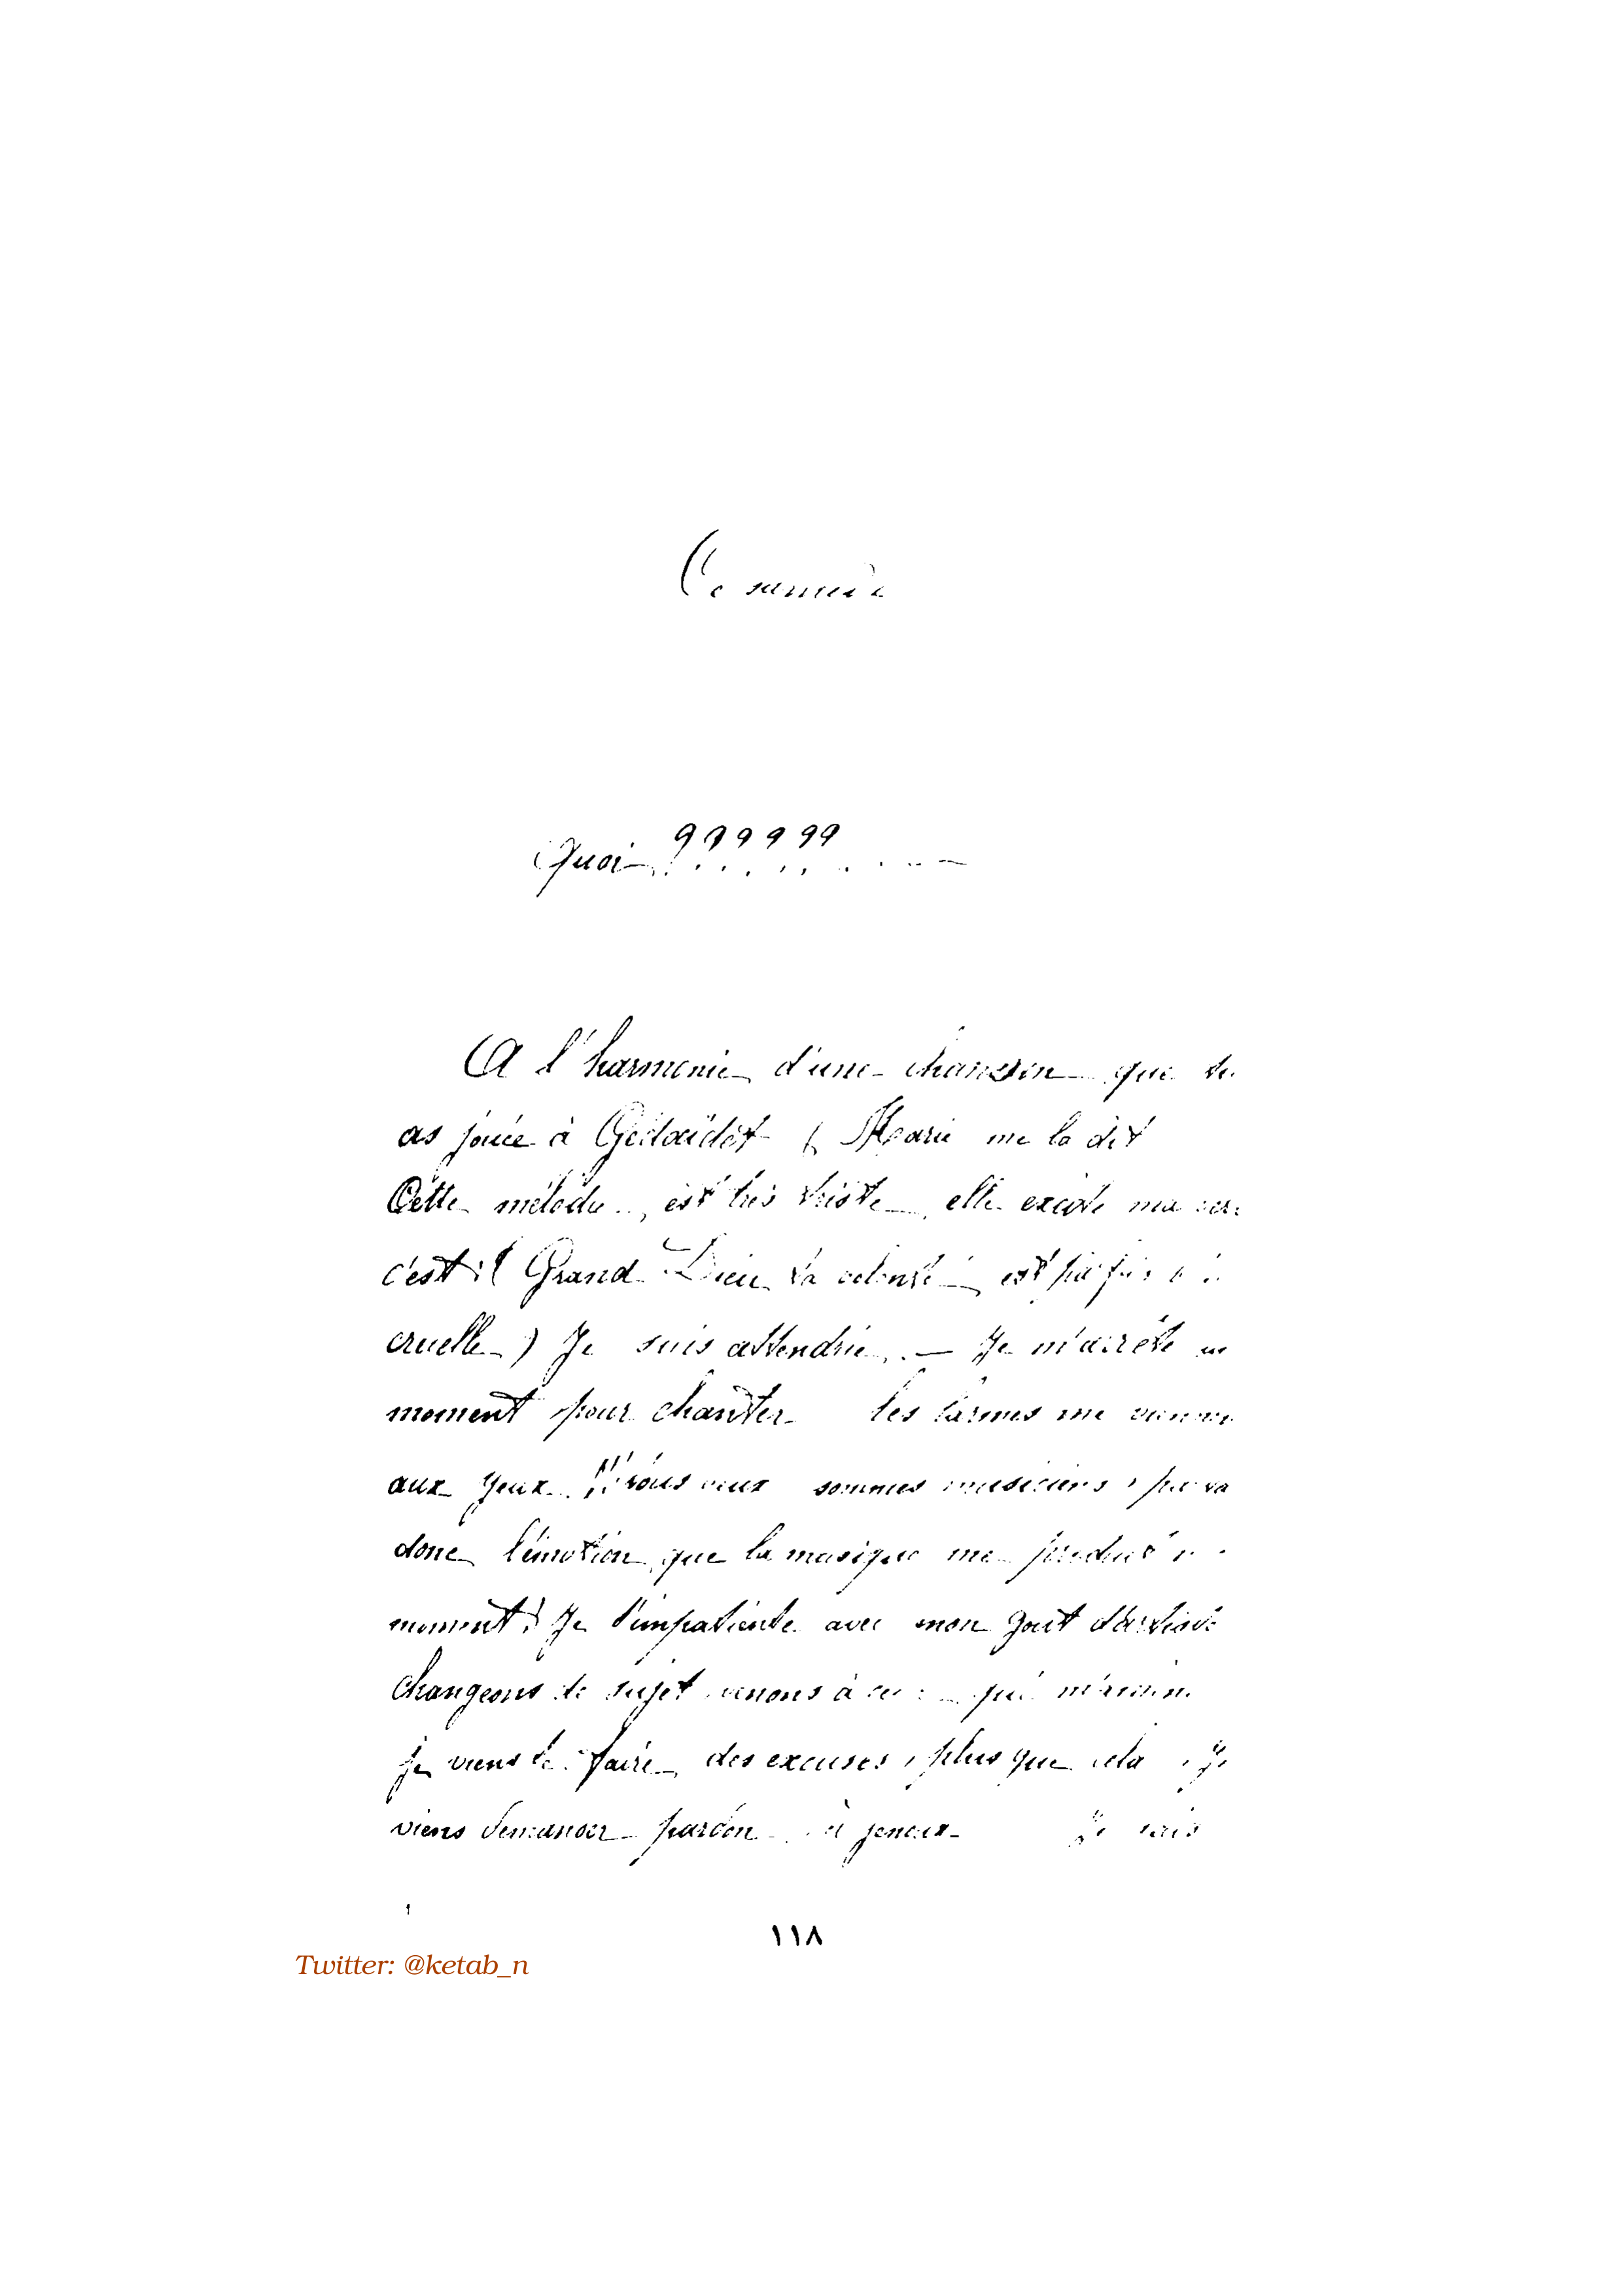 Ce samedi
Quoi ??????
A l'harmonie d'une chanson que tu
as jouée à (Marie me la dit
Cette mélodie, est très triste elle excite ma
c'est :( Grand Dieu ta volonté est parfois
cruelle) Je suis attendrie. — Je m'arrête un
moment pour chanter les larmes me viennent
aux yeux !!! tous deux sommes musiciens,
donc l'émotion que la musique me produit
moment! Je t'impatiente avec mon gout d'artiste
changeons de sujet venons à ce qui m'amène
je viens te faire des excuses, plus que cela, je
viens demander pardon à genoux je suis
١١٨
Twitter: @ketab_n